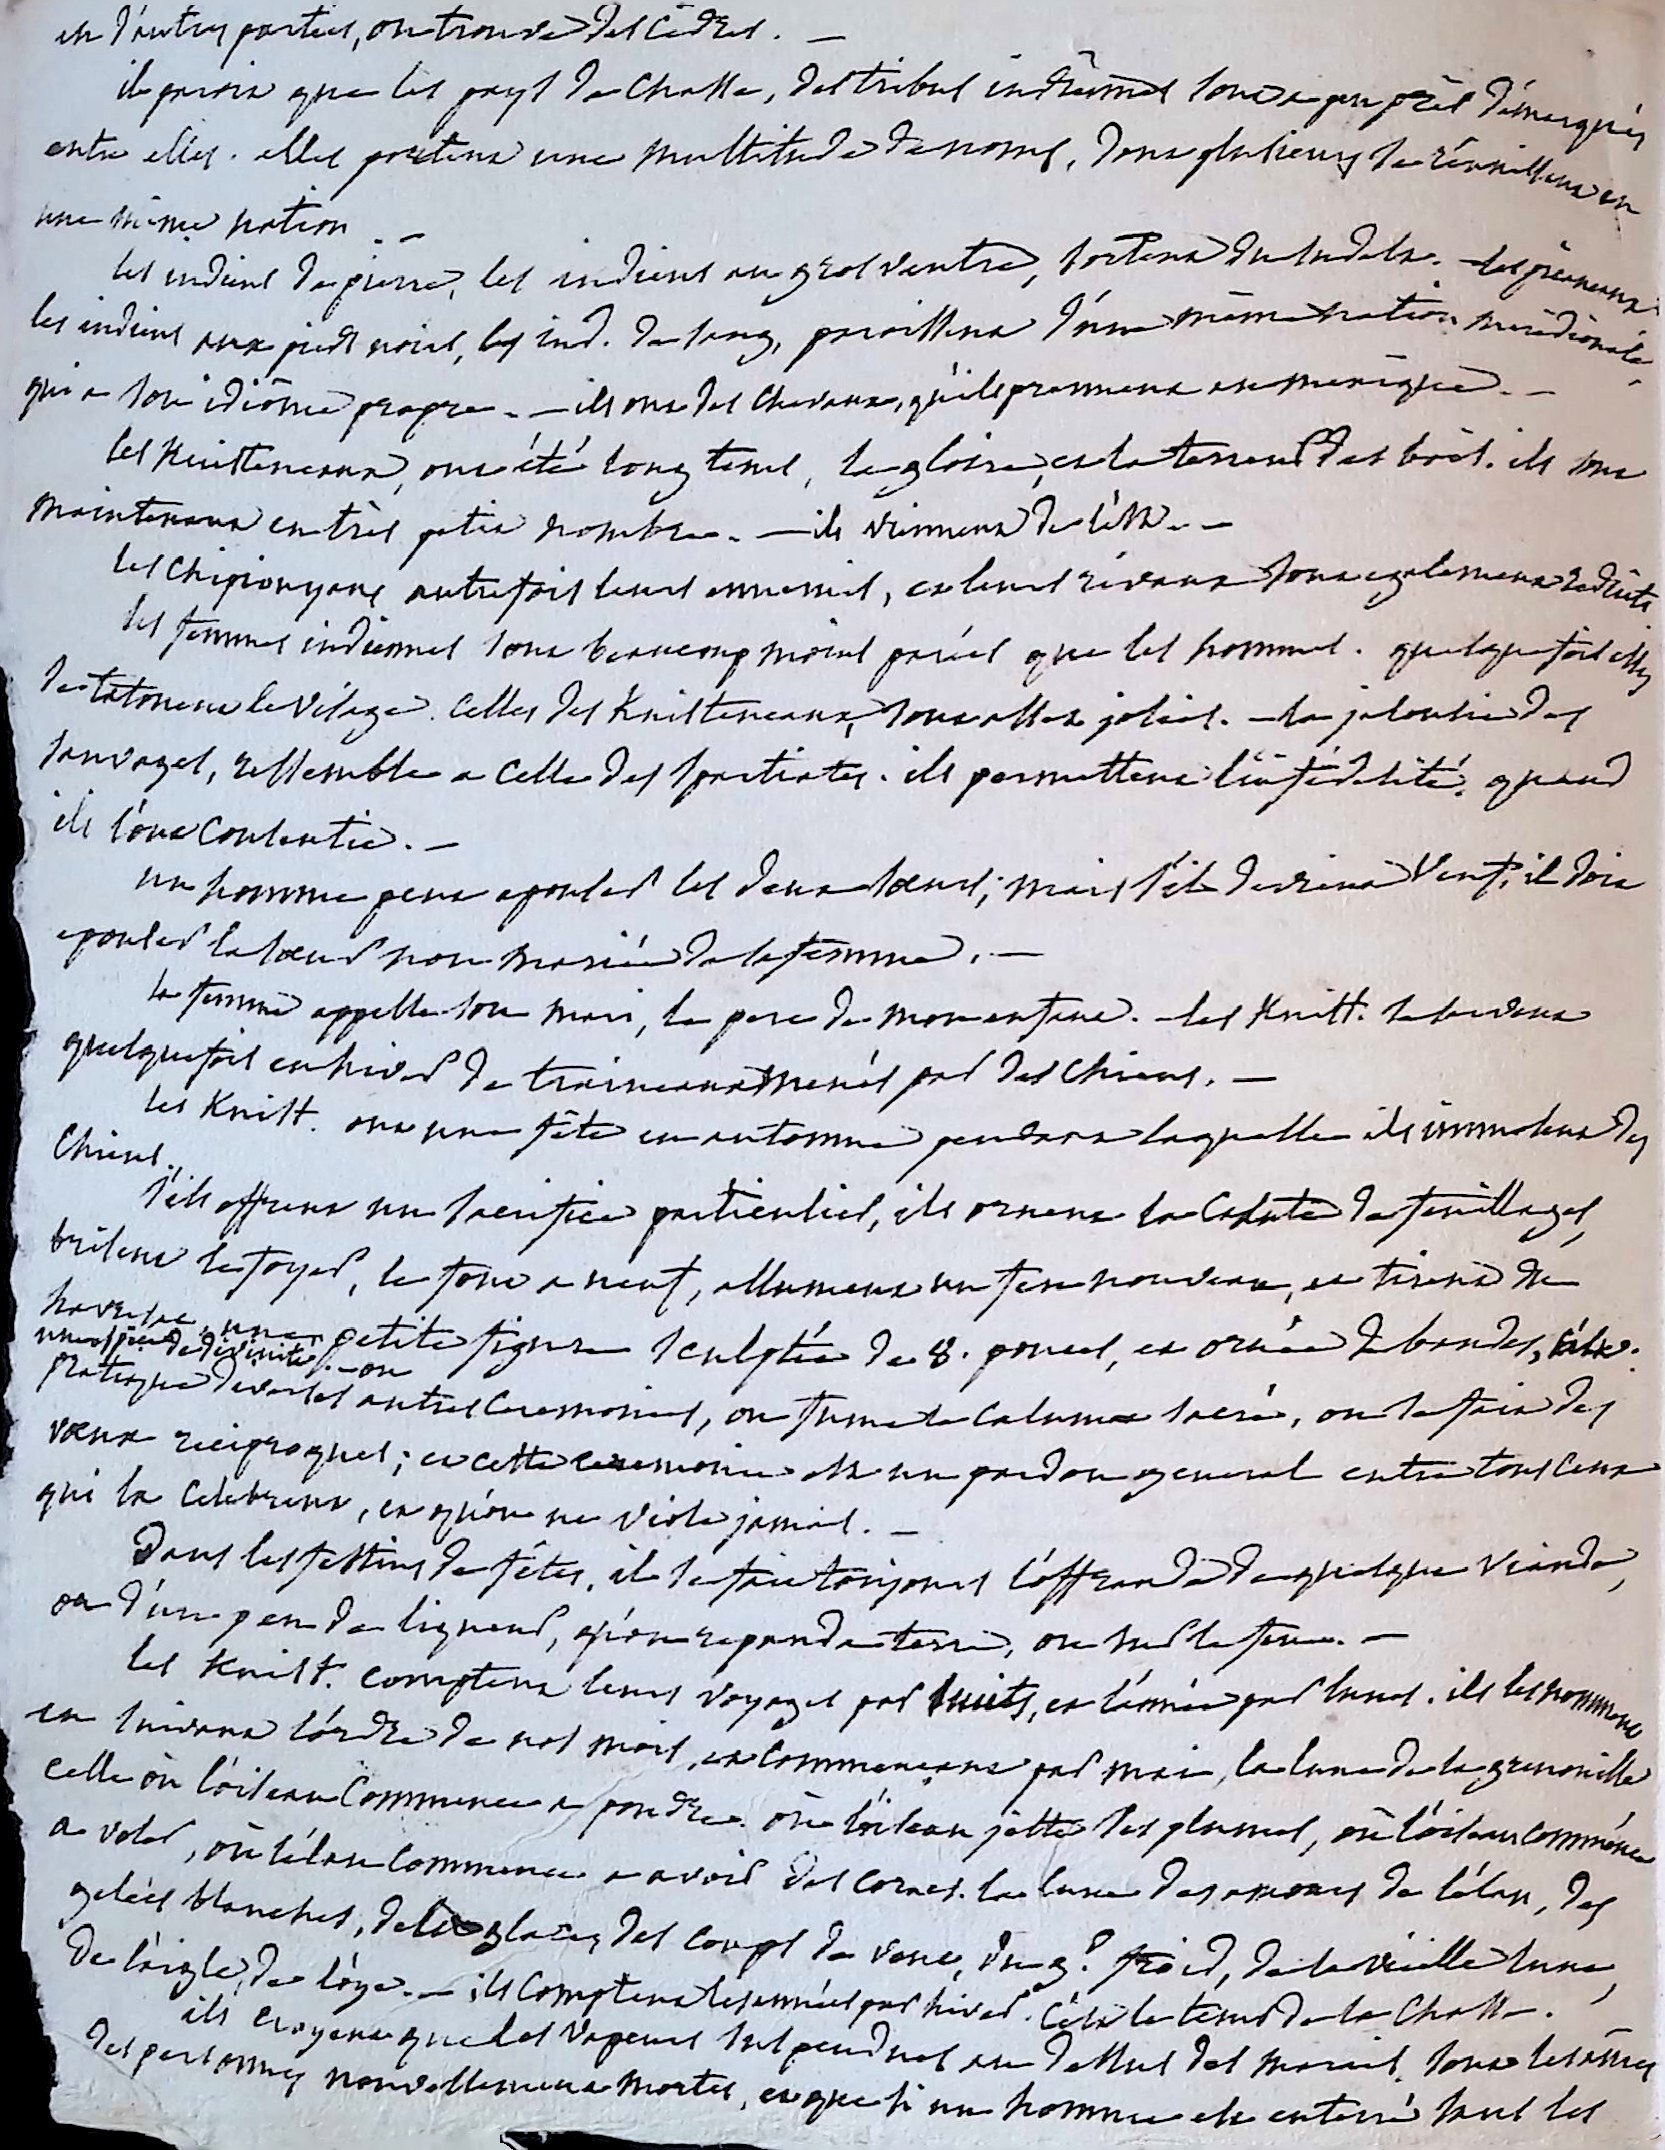 en d'autres parties, on trouve des cedres. —
il parois que les pays de chasse, des tribus indiennes sont a peu près démarqués
entre elles. elles portent une multitude de noms, dont plusieurs se réunissent en
une même nation. —
les indiens de pierre, les indiens au gros ventre, sortent du sud est.
les indiens aux pieds noirs, les ind. de sang, paroissent d'une même nation méridionale,
qui a son idiôme propre. — ils ont des chevaux, qu'ils prennent au mexique. —
les Knisteneaux, ont été long tems, la gloire, et la terreur des bois. ils sont
maintenant en très petit nombre. — ils viennent de l'est. —
les chipiouyans autrefois leurs ennemis, et leurs rivaux sont egalement réduits.
les femmes indiennes sont beaucoup moins parées que les hommes. quelquefois elles
se tatouent le visage. celles des Knisteneaux, sont assez jolies. — la jalousie des
sauvages, ressemble a celle des spartiates. ils permettent l'infidélité, quand
ils l'ont consentie. —
un homme peut epouser les deux soeurs; mais s'il devient veuf, il doit
epouser la soeur non mariée de sa femme. —
la femme appelle son mari, le pere de mon enfant. — les Knist. se servent
quelquefois en hiver de traineaux menés par des chiens. —
les Knist. ont une fête en automne pendant laquelle ils immolent des
chiens.
s'ils offrent un sacrifice particulier, ils ornent la cahute de feuillages,
brûlent le foyer, le font a neuf, allument un feu nouveau, et tirent du
havresac, une petite figure sculptée de 8. pouces, et ornée de bandes,
une espèce de divinité. — on
pratique diverses autres ceremonies, on fume le calumet sacré, on se fait des
voeux reciproques; et cette ceremonie est un pardon general entre tous ceux
qui la celebrent, et qu'on ne viole jamais. —
Dans les festins de fêtes, il se fait toujours l'offrande de quelque viande,
ou d'un peu de liqueur, qu'on repand a terre, ou sur le feu. —
les Knist. comptent leurs voyages par nuits, et l'année par lunes. ils les nomment
en suivant l'ordre de nos mois, et commençant par mai, la lune de la grenouille
celle où l'oiseau commence a pondre. où l'oiseau jette ses plumes, où l'oiseau commence
a voler, où l'élan commence a avoir des cornes. la lune des amours de l'élan, des
gelées blanches, de la glace, des coups de vent, du gd. froid, de la vieille lune,
de l'aigle, de l'oye. — ils comptent les années par hiver. c'est le tems de la chasse.
ils croyent que les vapeurs suspendues au dessus des marais, sont les âmes
des personnes nouvellement mortes, et que si un homme est enterré sans les